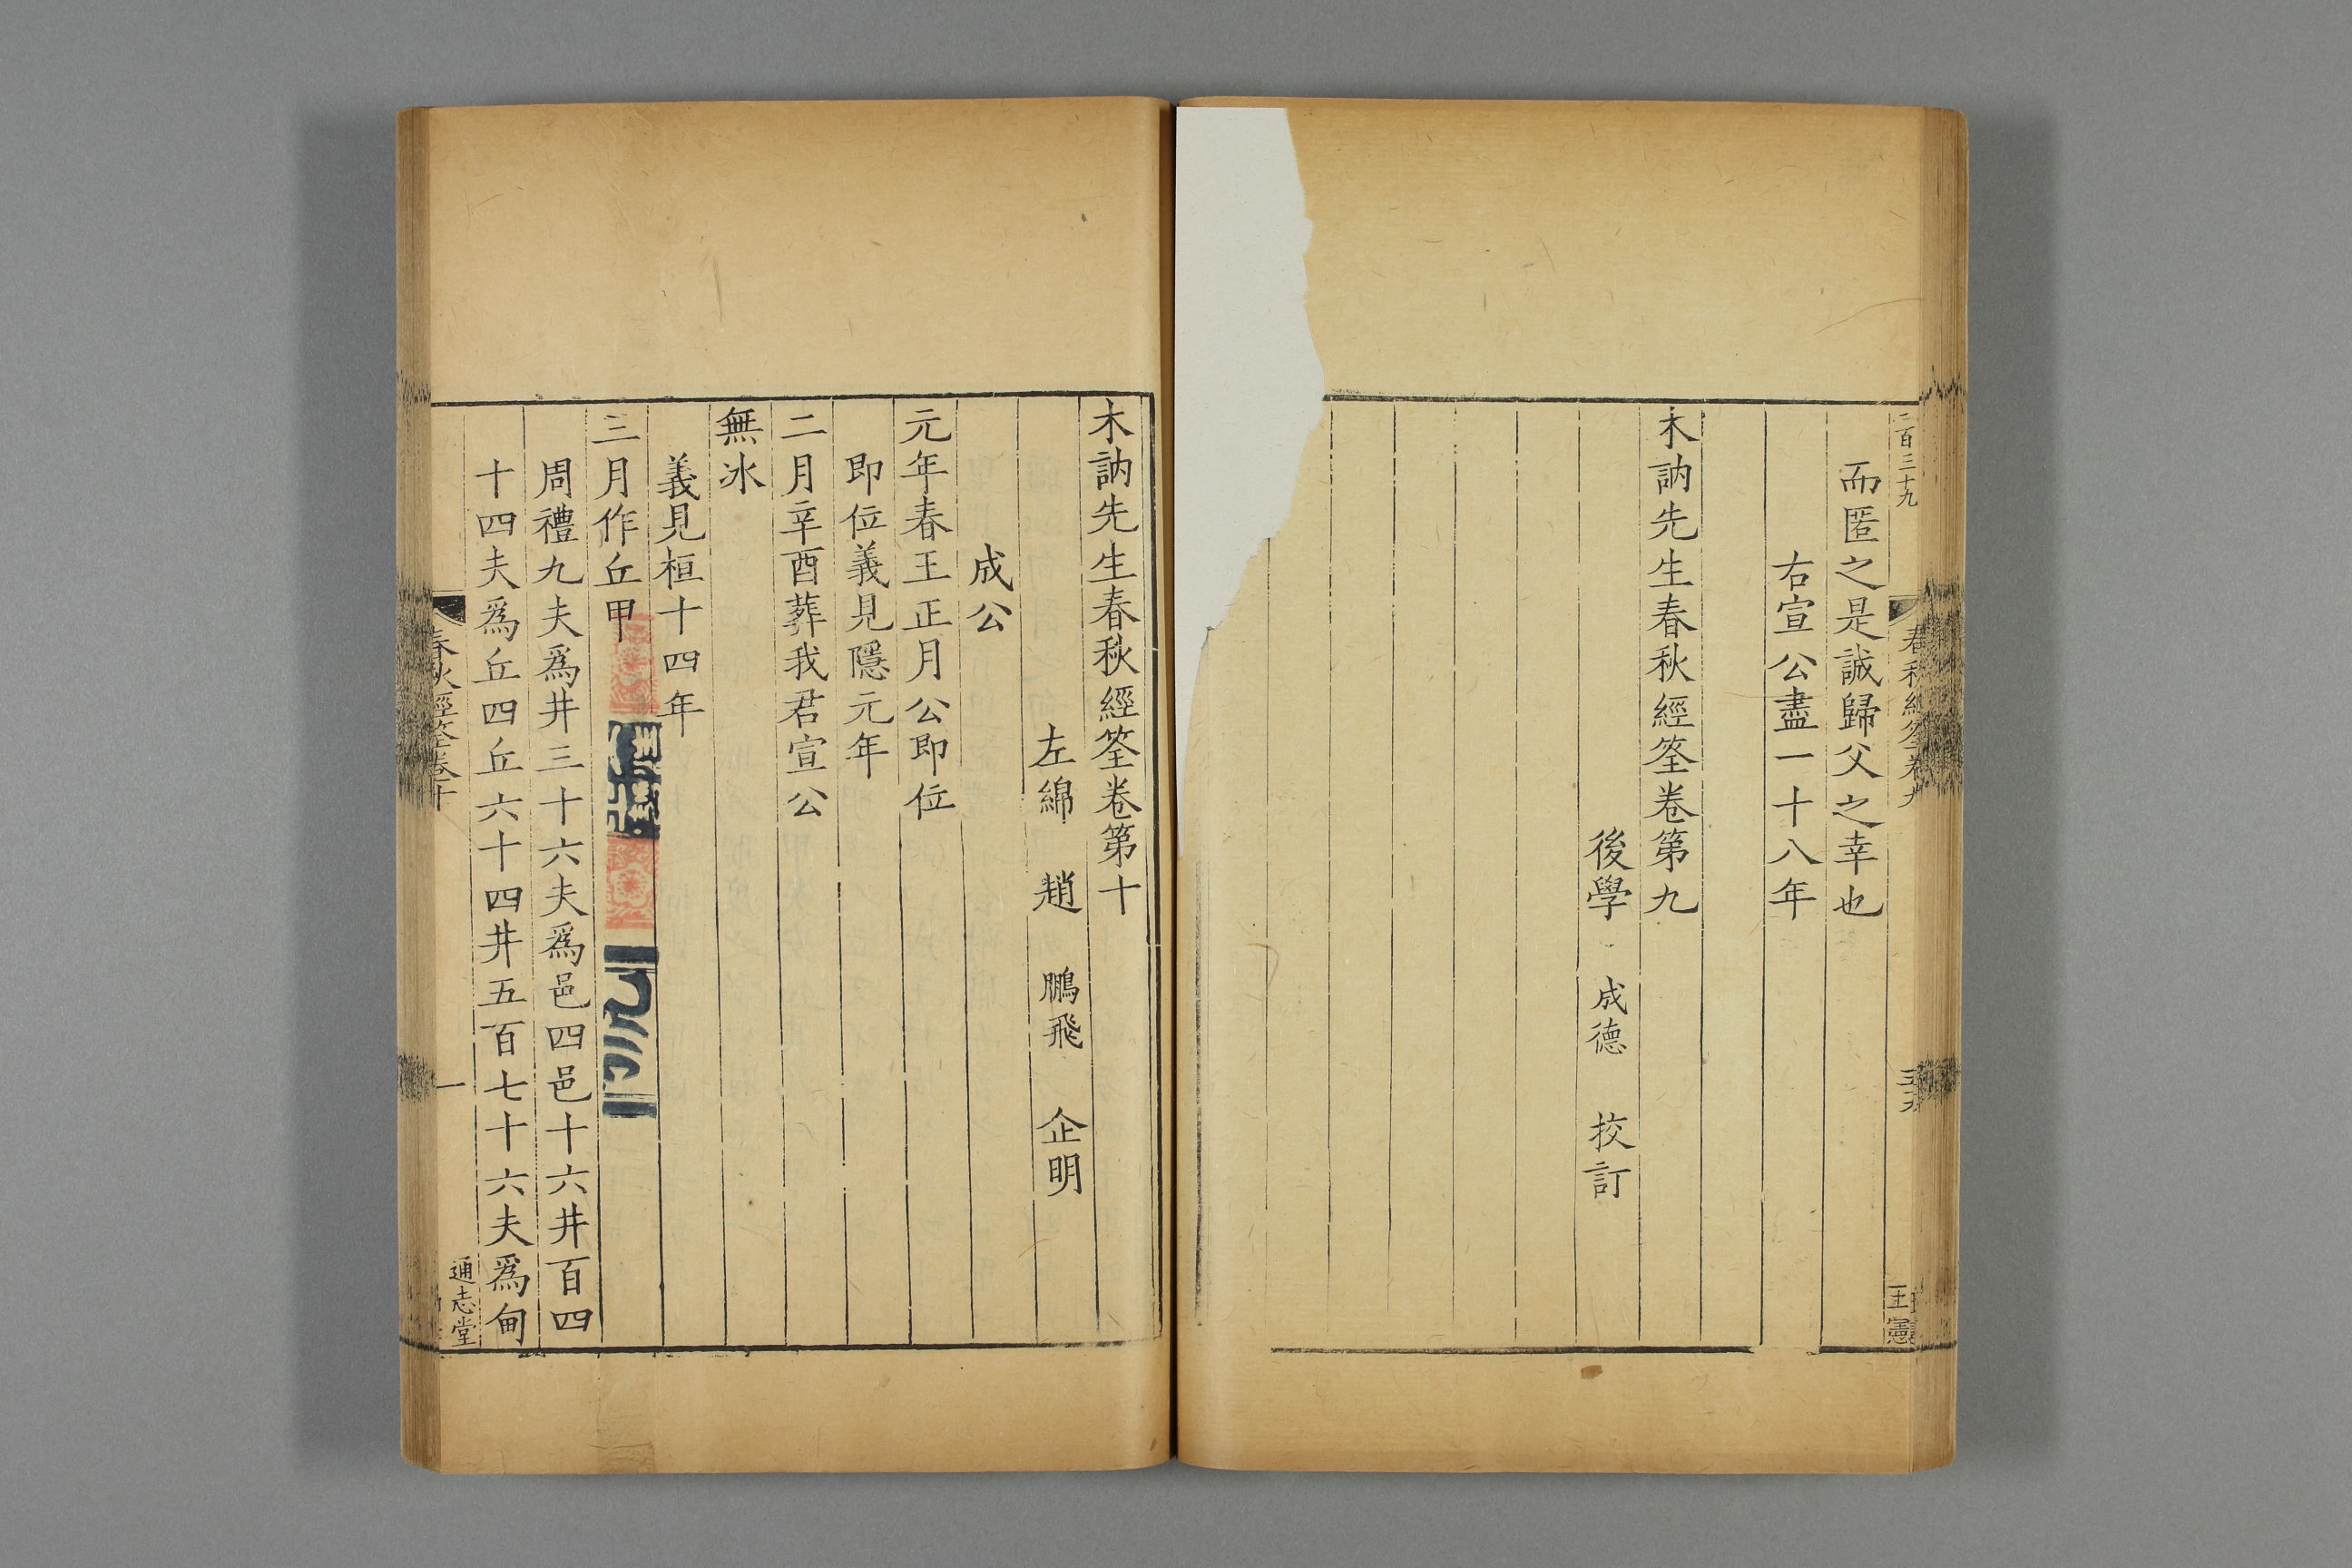 二百三十九
而匿之是誠歸父之幸也
右宣公盡一十八年
木訥先生春秋經筌卷第九
後學 成德 挍訂
春秋經筌卷九
王憲
木訥先生春秋經筌卷第十
左綿 趙 鵬飛 企明
成公
元年春王正月公即位
即位義見隱元年
二月辛酉葬我君宣公
無冰
義見桓十四年
三月作丘甲
周禮九夫爲井三十六夫爲邑四邑十六井百四
十四夫爲丘四丘六十四井五百七十六夫爲甸
春秋經筌卷十
一
通志堂